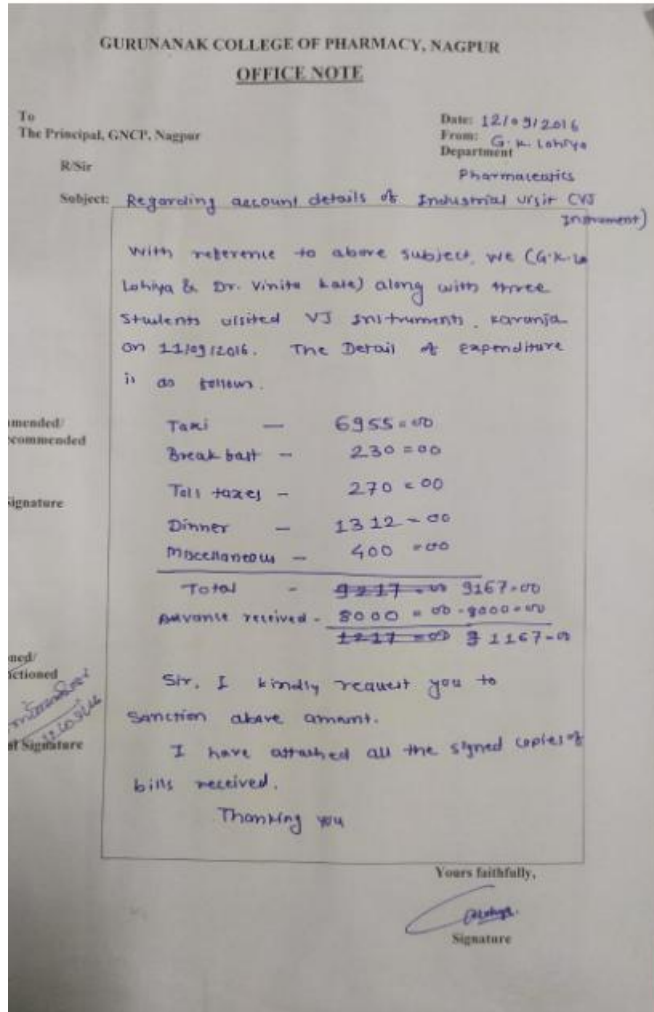 GURUNANAK COLLEGE OF PHARMACY, NAGPUR
OFFICE NOTE
To
The Principal, GNCP, Nagpur
Date: 12/09/2016
From: G. K. Lohiya
Department
Pharmaceutics
R/Sir
Subject: Regarding account details of Industrial visit (VJ
Instrument)
With reference to above subject, we (G.K. Lo
Lohiya & Dr. Vinita Kale) along with three
Students visited VJ Instruments, Karanja
on 11/09/2016. The Detail of expenditure
is as follows.
Taxi — 6955=00
Breakfast – 230=00
Toll taxes – 270=00
Dinner – 1312=00
Miscellaneous – 400=00
Total - 9217=00 9167=00
Advance received - 8000=00 -8000=00
1217=00 1167=00
mmended/
commended
ignature
Sir, I kindly request you to
Sanction above amount.
I have attached all the signed copies of
bills received.
Thanking you
ned/
ctioned
al Signature
Yours faithfully,
Signature